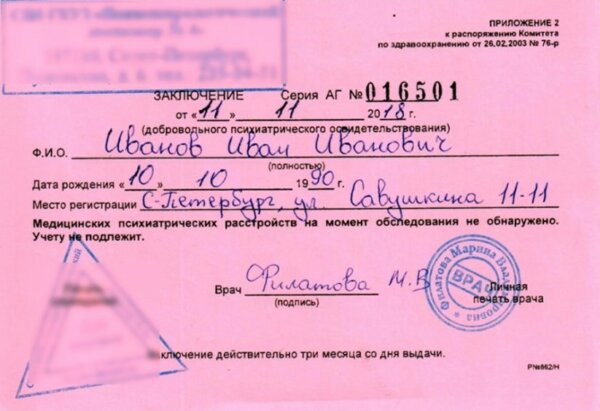 ПРИЛОЖЕНИЕ 2
к распоряжению Комитета
по здравоохранению от 26.02.2003 № 76-р
ЗАКЛЮЧЕНИЕ Серия АГ № 016501
от «11» 11 2018 г.
(добровольного психиатрического освидетельствования)
Ф.И.О. Иванов Иван Иванович
(полностью)
Дата рождения «10» 10 1990 г.
Место регистрации С-Петербург, ул. Савушкина 11-11
Медицинских психиатрических расстройств на момент обследования не обнаружено.
Учету не подлежит.
Врач Филатова М.В
(подпись)
Личная
печать врача
Филатова Марина Владимировна
ВРАЧ
Заключение действительно три месяца со дня выдачи.
P№662/Н